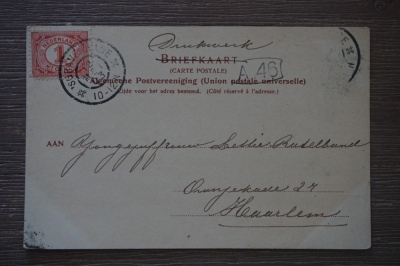 Drukwerk
NEDERLAND
1
BRIEFKAART
(CARTE POSTALE)
A 46
Algemeene Postvereeniging (Union postale universelle)
Zijde voor het adres bestemd. (Côté réservé à l'adresse.)
10-12
AAN Jongejuffrouw Lettie Ratelband
Oranjekade 27
Haarlem